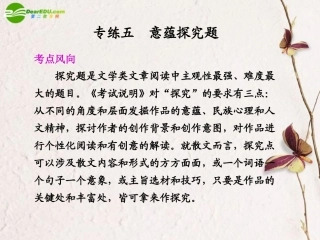 DearEDU.com
专练五 意蕴探究题
考点风向
探究题是文学类文章阅读中主观性最强、难度最
大的题目。《考试说明》对“探究”的要求有三点：
从不同的角度和层面发掘作品的意蕴、民族心理和人
文精神，探讨作者的创作背景和创作意图，对作品进
行个性化阅读和有创意的解读。就散文而言，探究点
可以涉及散文内容和形式的方方面面，或一个词语
个句子一个意象，或主旨选材和技巧，只要是作品的
关键处和丰富处，皆可拿来作探究。